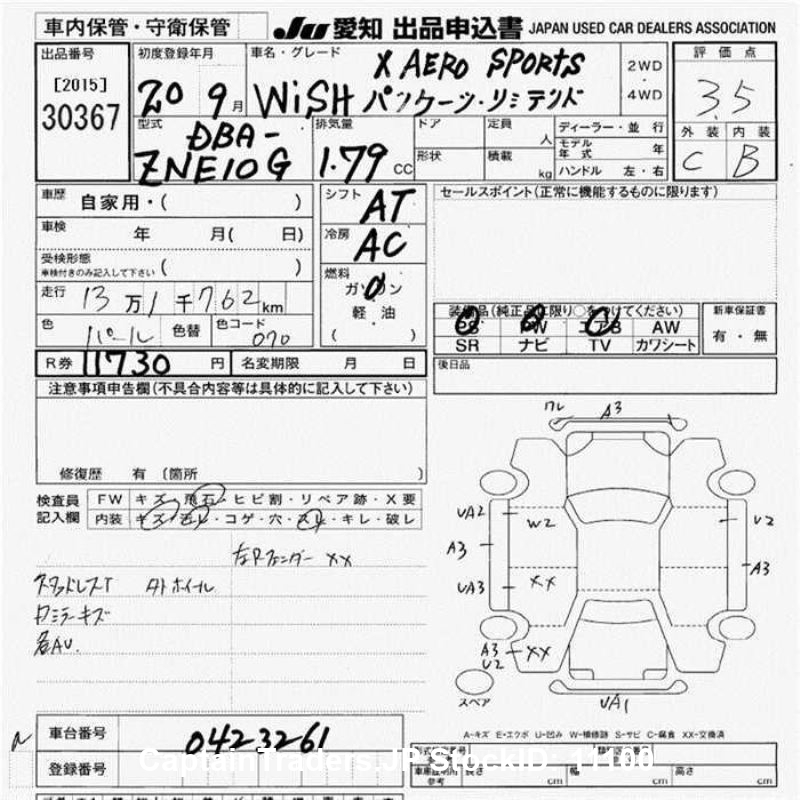 車内保管・守衛保管 JU 愛知 出品申込書 JAPAN USED CAR DEALERS ASSOCIATION
出品番号 初度登録年月 車名・グレード 評価点
[2015] 30367
20 9月
X AERO SPORTS
WiSH パッケージ・リミテッド
2WD ・ 4WD
3.5
外装 内装
C B
型式 DBA-
ZNE10G
排気量 1.79 CC
ドア 定員 人
形状 積載 kg
ディーラー・並行
モデル年式 年
ハンドル 左・右
車歴 自家用・( )
車検 年 月( 日)
受検形態
車検付きのみ記入して下さい ( )
走行 13万1千762km
色 パール 色替 色コード 070
シフト AT
冷房 AC
燃料
ガソリン
軽・油
( )
セールスポイント(正常に機能するものに限ります)
装備品(純正品に限り○をつけてください)
PS PW エアB AW
SR ナビ TV カワシート
新車保証書
有・無
R券 11730 円 名変期限 月 日
後日品
注意事項申告欄(不具合内容等は具体的に記入して下さい)
修復歴 有 〔箇所 〕
検査員記入欄
FW キズ・飛石・ヒビ割・リペア跡・X要
内装 キズ・汚レ・コゲ・穴・スレ・キレ・破レ
左Rフェンダー XX
スタッドレスT タトホイール
Dミラーキズ
各AU.
ワレ A3
UA2 W2 U2
A3
UA3 XX A3
A3
U2 XX
スペア
UA1
A-キズ E-エクボ U-凹み W-補修跡 S-サビ C-腐食 XX-交換済
車台番号 0423261
登録番号
CaptainTraders.JP StockID: 11100
長さ cm 幅 cm 高さ cm
参考